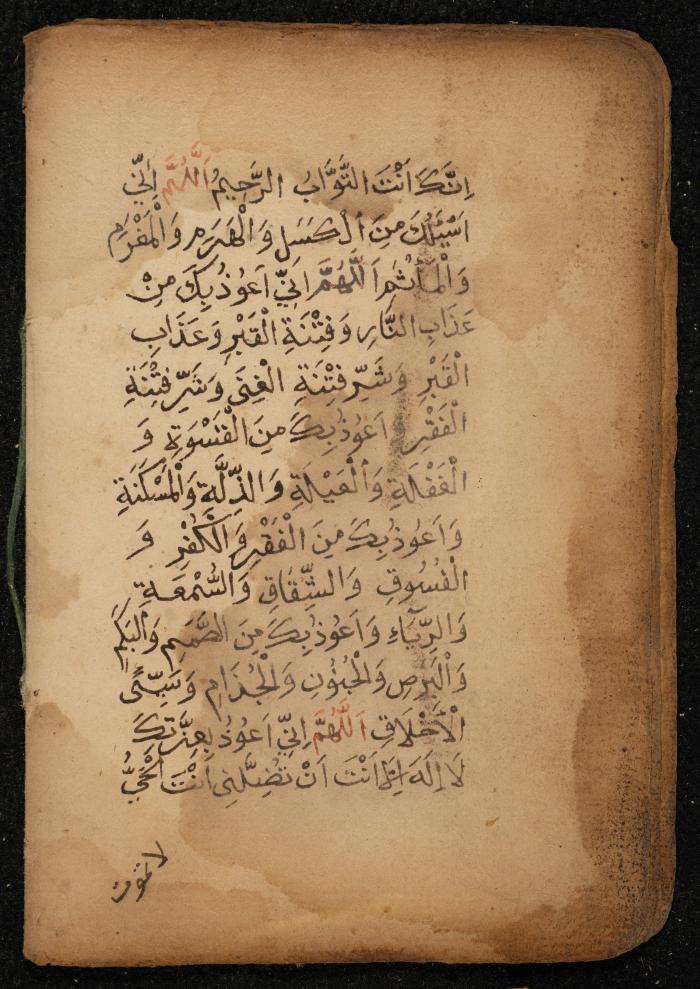 اِنَّكَ اَنْتَ التَّوَّابُ الرَّحِيمُ اَللّٰهُمَّ اِنِّي
اَسْئَلُكَ مِنَ الْكَسَلِ وَالْهَرَمِ وَالْمَغْرَمِ
وَالْمَأْثَمِ اَللّٰهُمَّ اِنِّي اَعُوذُ بِكَ مِنْ
عَذَابِ النَّارِ وَفِتْنَةِ الْقَبْرِ وَعَذَابِ
الْقَبْرِ وَشَرِّ فِتْنَةِ الْغِنَى وَشَرِّ فِتْنَةِ
الْفَقْرِ اَعُوذُ بِكَ مِنَ الْقَسْوَةِ وَ
الْغَفْلَةِ وَالْعَيْلَةِ وَالذِّلَّةِ وَالْمَسْكَنَةِ
وَاَعُوذُ بِكَ مِنَ الْفَقْرِ وَالْكُفْرِ وَ
الْفُسُوقِ وَالشِّقَاقِ وَالسُّمْعَةِ
وَالرِّيَآءِ وَاَعُوذُ بِكَ مِنَ الصَّمَمِ وَالْبَكَمِ
وَالْبَرَصِ وَالْجُنُونِ وَالْجُذَامِ وَسَيِّئِ
الْاَخْلَاقِ اَللّٰهُمَّ اِنِّي اَعُوذُ بِعِزَّتِكَ
لَا اِلٰهَ اِلَّا اَنْتَ اَنْ تُضِلَّنِي اَنْتَ الْحَيُّ
لا تموت